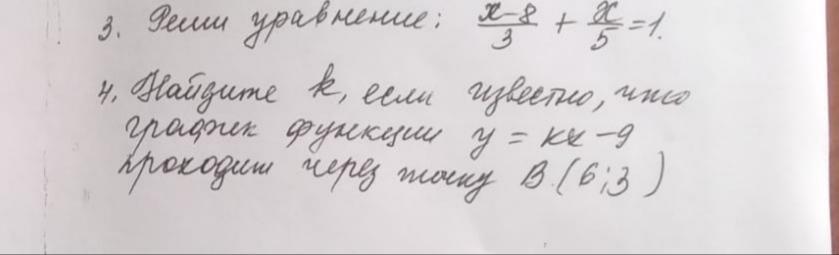 3. Реши уравнение: (x-8)/3 + x/5 = 1.
4. Найдите k, если известно, что
график функции y = kx - 9
проходит через точку B (6;3)